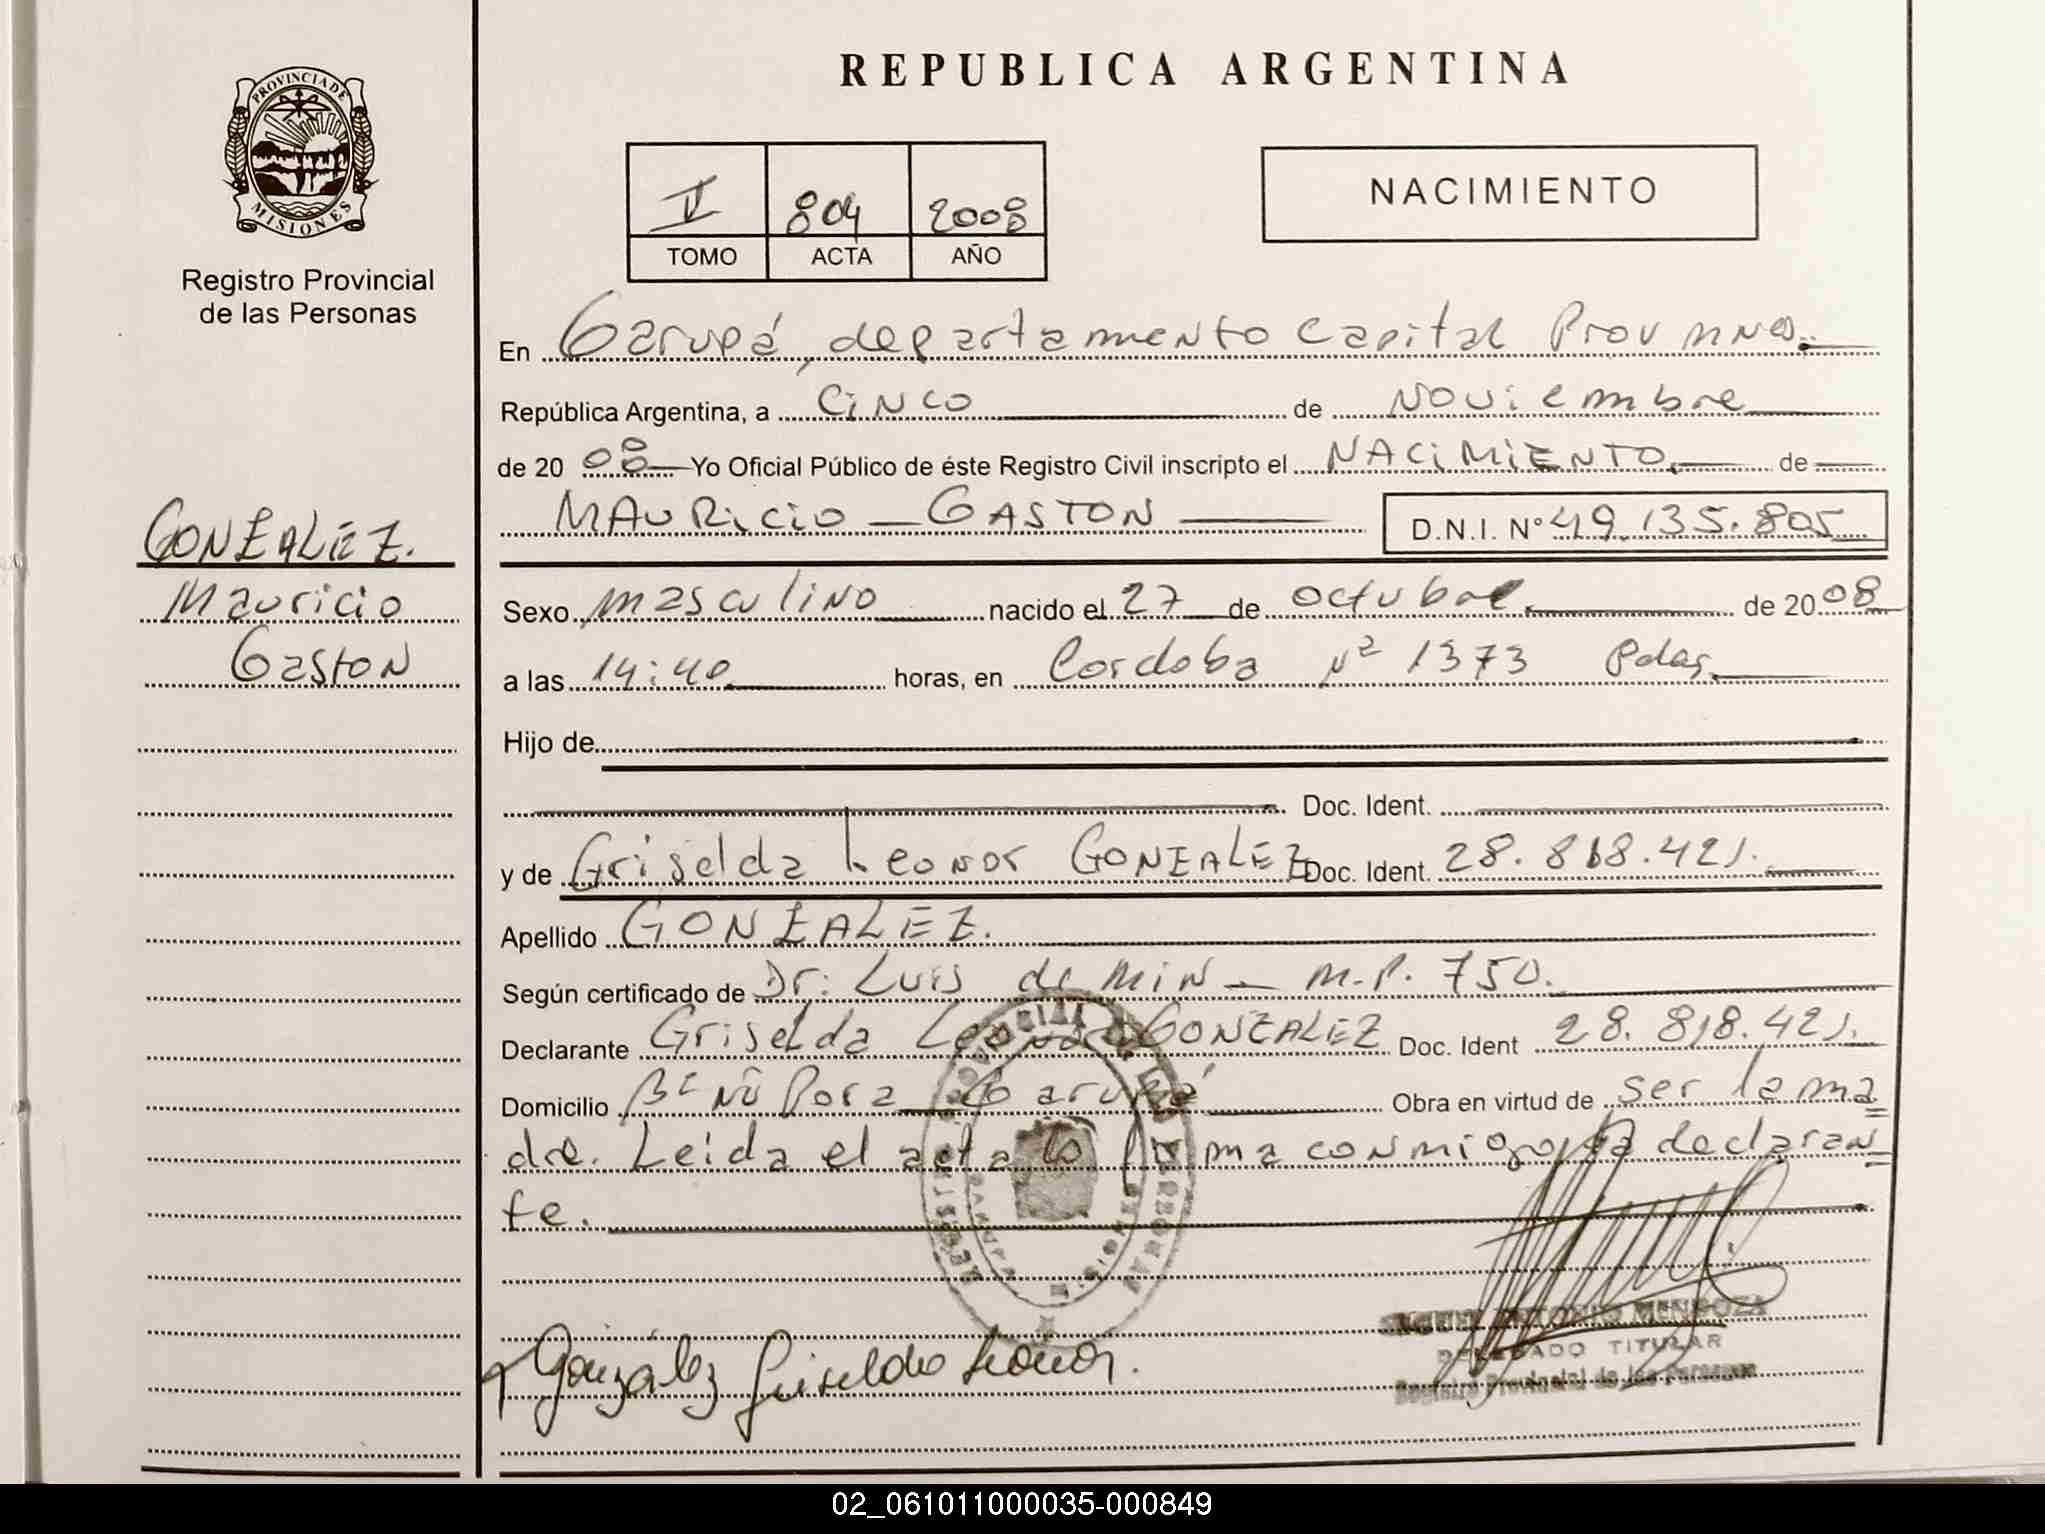 PROVINCIA DE
MISIONES
Registro Provincial
de las Personas
GONZALEZ.
Mauricio
Gaston
REPUBLICA ARGENTINA
804 2008
TOMO ACTA AÑO
NACIMIENTO
En Garupá, departamento Capital Prov Mnes.
República Argentina, a Cinco de Noviembre
de 20 08 Yo Oficial Público de éste Registro Civil inscripto el NACIMIENTO de
MAURICIO - GASTON D.N.I. Nº 49.135.805
Sexo masculino nacido el 27 de octubre de 20 08
a las 14:40 horas, en Cordoba Nº 1373 Pdas.
Hijo de
Doc. Ident.
y de Griselda Leonor GONZALEZ Doc. Ident. 28.818.421.
Apellido GONZALEZ.
Según certificado de Dr: Luis de Min - M.P. 750.
Declarante Griselda Leonor GONZALEZ Doc. Ident 28.818.421.
Domicilio Bº Ñu Pora - Garupá Obra en virtud de ser la ma
dre. Leida el acta la firma conmigo la declaran
te.
González Griselda Leonor.
ANTONIO MENDOZA
DELEGADO TITULAR
Registro Provincial de las Personas
02_061011000035-000849